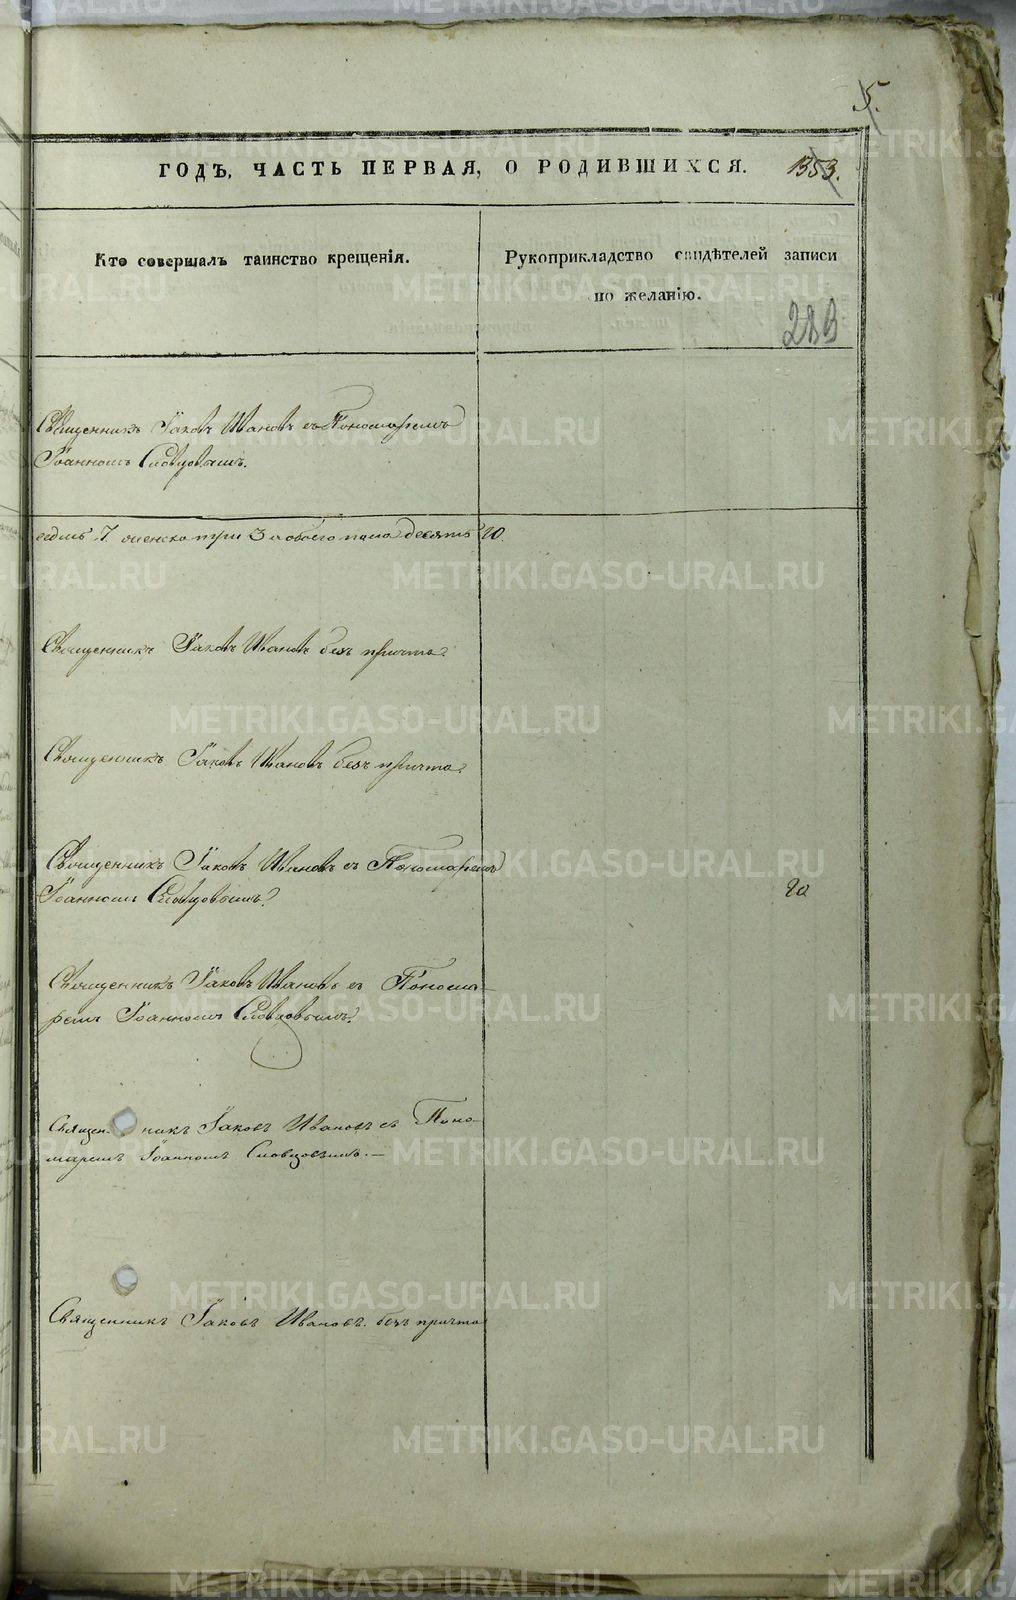 5.
ГОДЪ, ЧАСТЬ ПЕРВАЯ, О РОДИВШИХСЯ. 1353.
Кто совершалъ таинство крещенія.
Рукоприкладство свидѣтелей записи
по желанію.
283
Священникъ Іаковъ Ивановъ съ Пономаремъ
Іоанномъ Словцовымъ.
седмь 7. женска три 3 а обоего пола десять 10.
Священникъ Іаковъ Ивановъ безъ причта.
Священникъ Іаковъ Ивановъ безъ причта.
Священникъ Іаковъ Ивановъ съ Пономаремъ
Іоанномъ Словцовымъ.
Священникъ Іаковъ Ивановъ съ Понома-
ремъ Іоанномъ Словцовымъ.
Священ- никъ Іаковъ Ивановъ съ Поно-
маремъ Іоанномъ Словцовымъ.—
Священникъ Іаковъ Ивановъ. безъ причта
METRIKI.GASO-URAL.RU